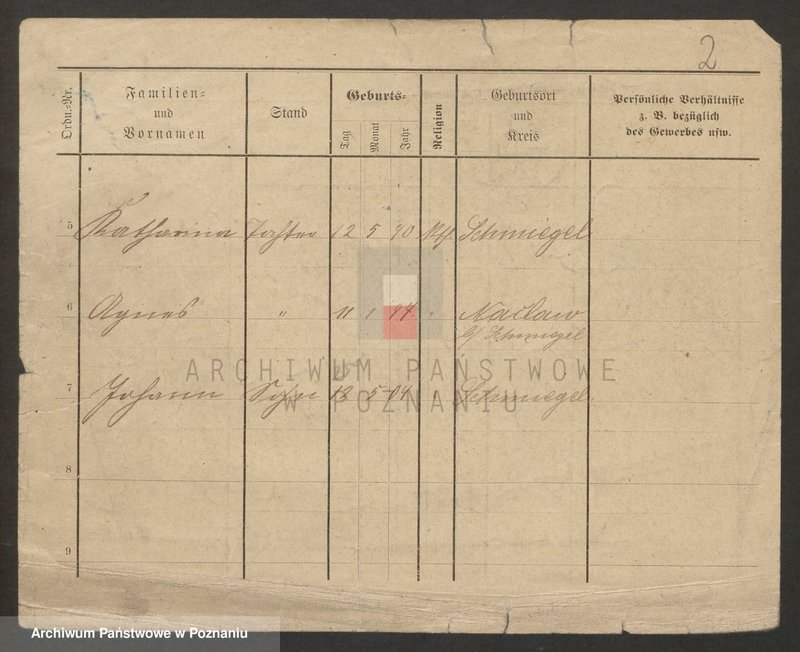 2
Ordn.-Nr.
Familien-
und
Vornamen
Stand
Geburts-
Tag
Monat
Jahr
Religion
Geburtsort
und
Kreis
Persönliche Verhältnisse
z. B. bezüglich
des Gewerbes usw.
5 Katharina Tochter 12 5 90 Schmiegel
6 Agnes " 11 1 94 Naclaw
b/ Schmiegel
7 Johann Sohn 12 5 04 Schmiegel
8
9
ARCHIWUM PAŃSTWOWE
W POZNANIU
Archiwum Państwowe w Poznaniu